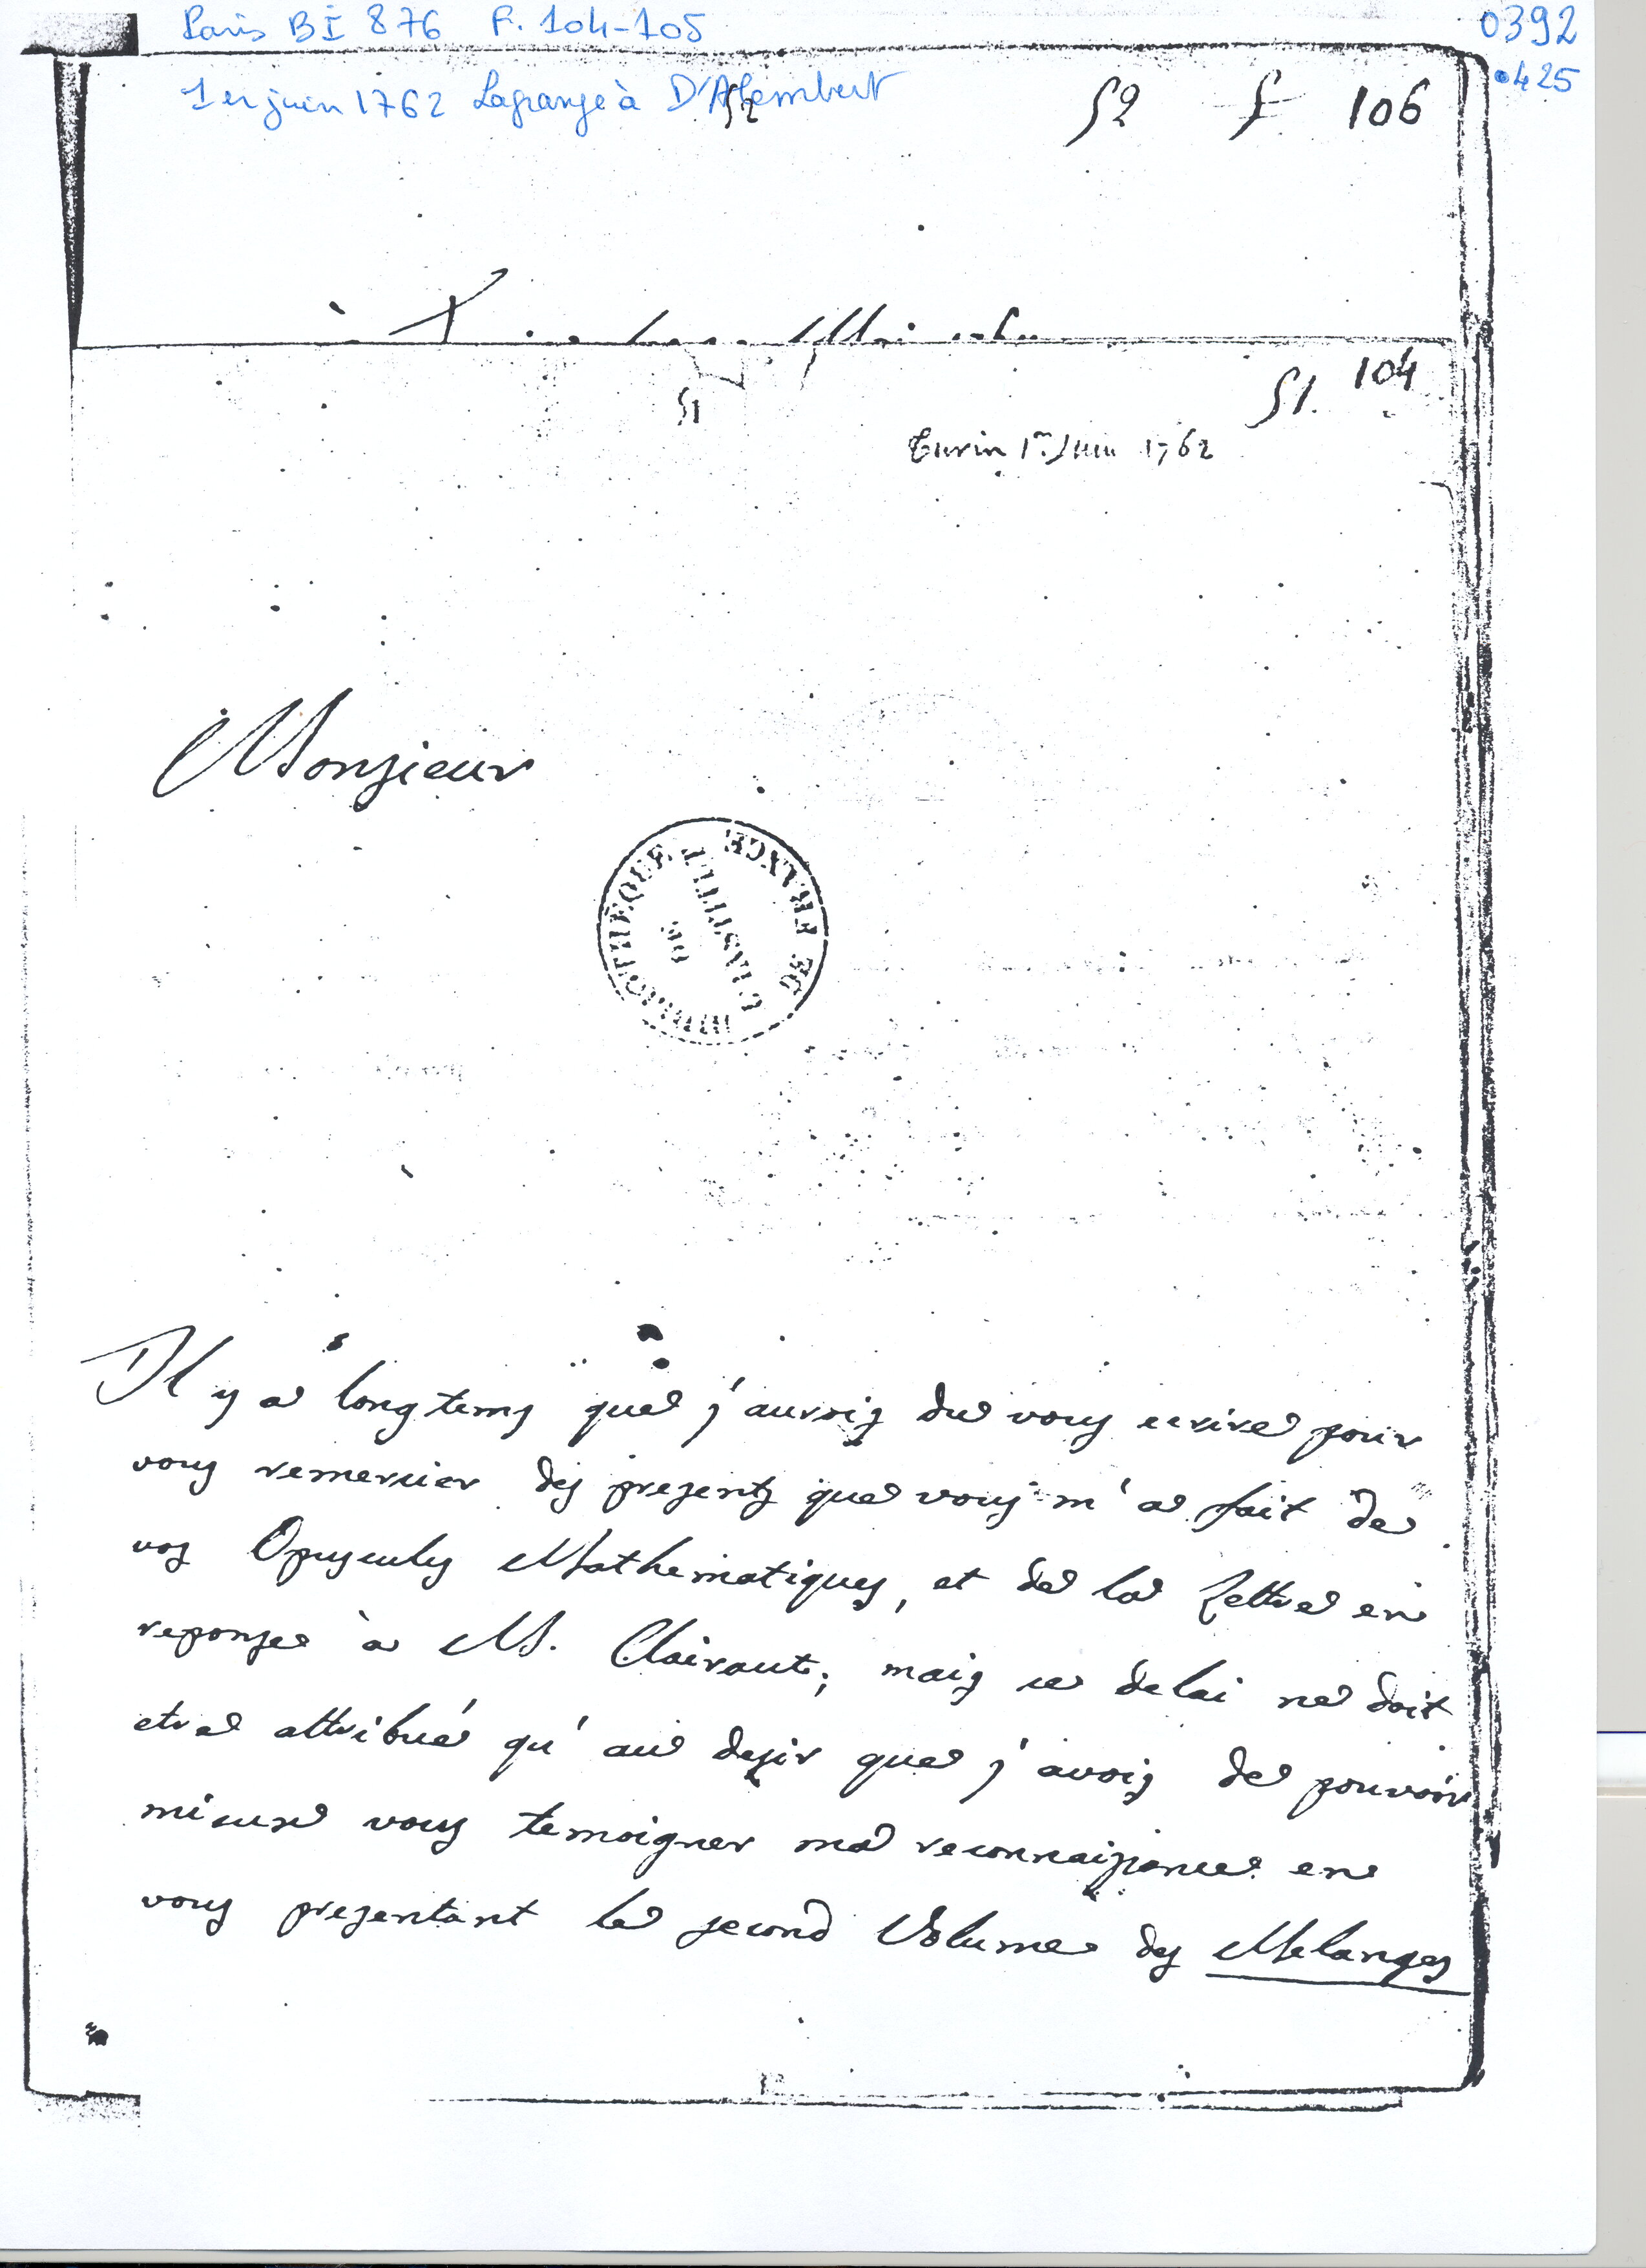 Paris BI 876 F. 104-105
0392
425
1er juin 1762 Lagrange à D'Alembert
52
52 f 106
à
51. 104
51
Turin 1er Juin 1762
Monsieur
BIBLIOTHÈQUE DE L'INSTITUT DE FRANCE
Il y a long tems que j'aurois du vous ecrire pour
vous remercier des presents que vous m'a fait de
vos Opuscules Mathematiques, et de la Lettre en
reponse à M. Clairaut; mais ce delai ne doit
etre attribué qu'au desir que j'avois de pouvoir
mieux vous temoigner ma reconnaissance en
vous presentant le second Volume des Melanges